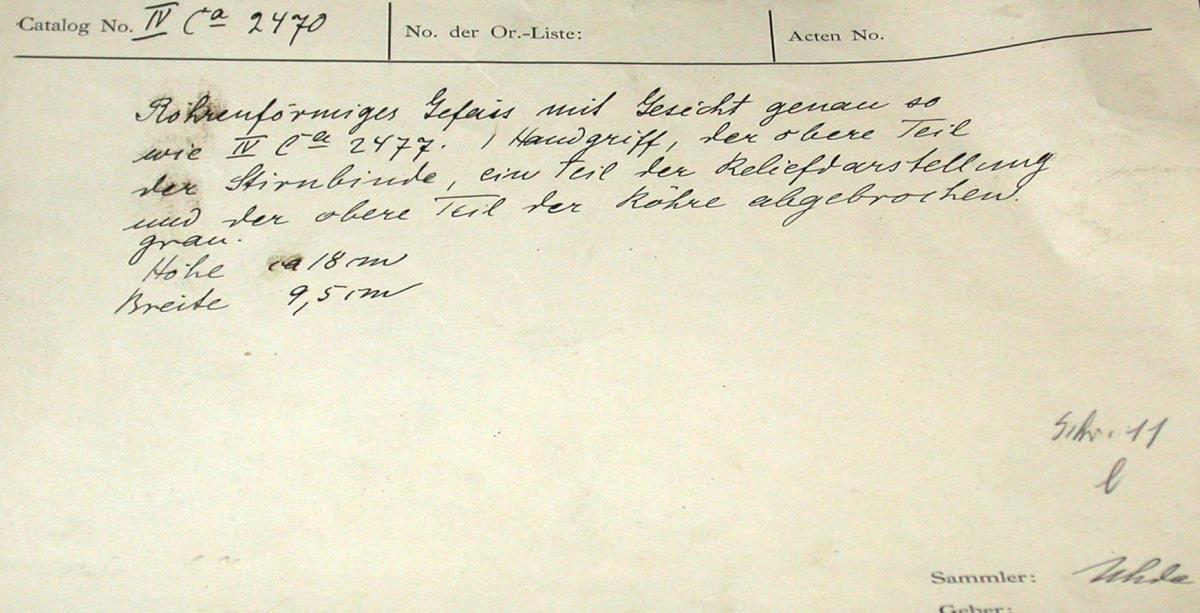 Catalog No. IV Ca 2470 No. der Or.-Liste: Acten No.
Röhrenförmiges Gefäss mit Gesicht genau so
wie IV Ca 2477. 1 Handgriff, der obere Teil
der Stirnbinde, ein Teil der Reliefdarstellung
und der obere Teil der Röhre abgebrochen.
grau.
Höhe ca 18 cm
Breite 9,5 cm
Schr. 11
l
Sammler: Uhde
Geber: